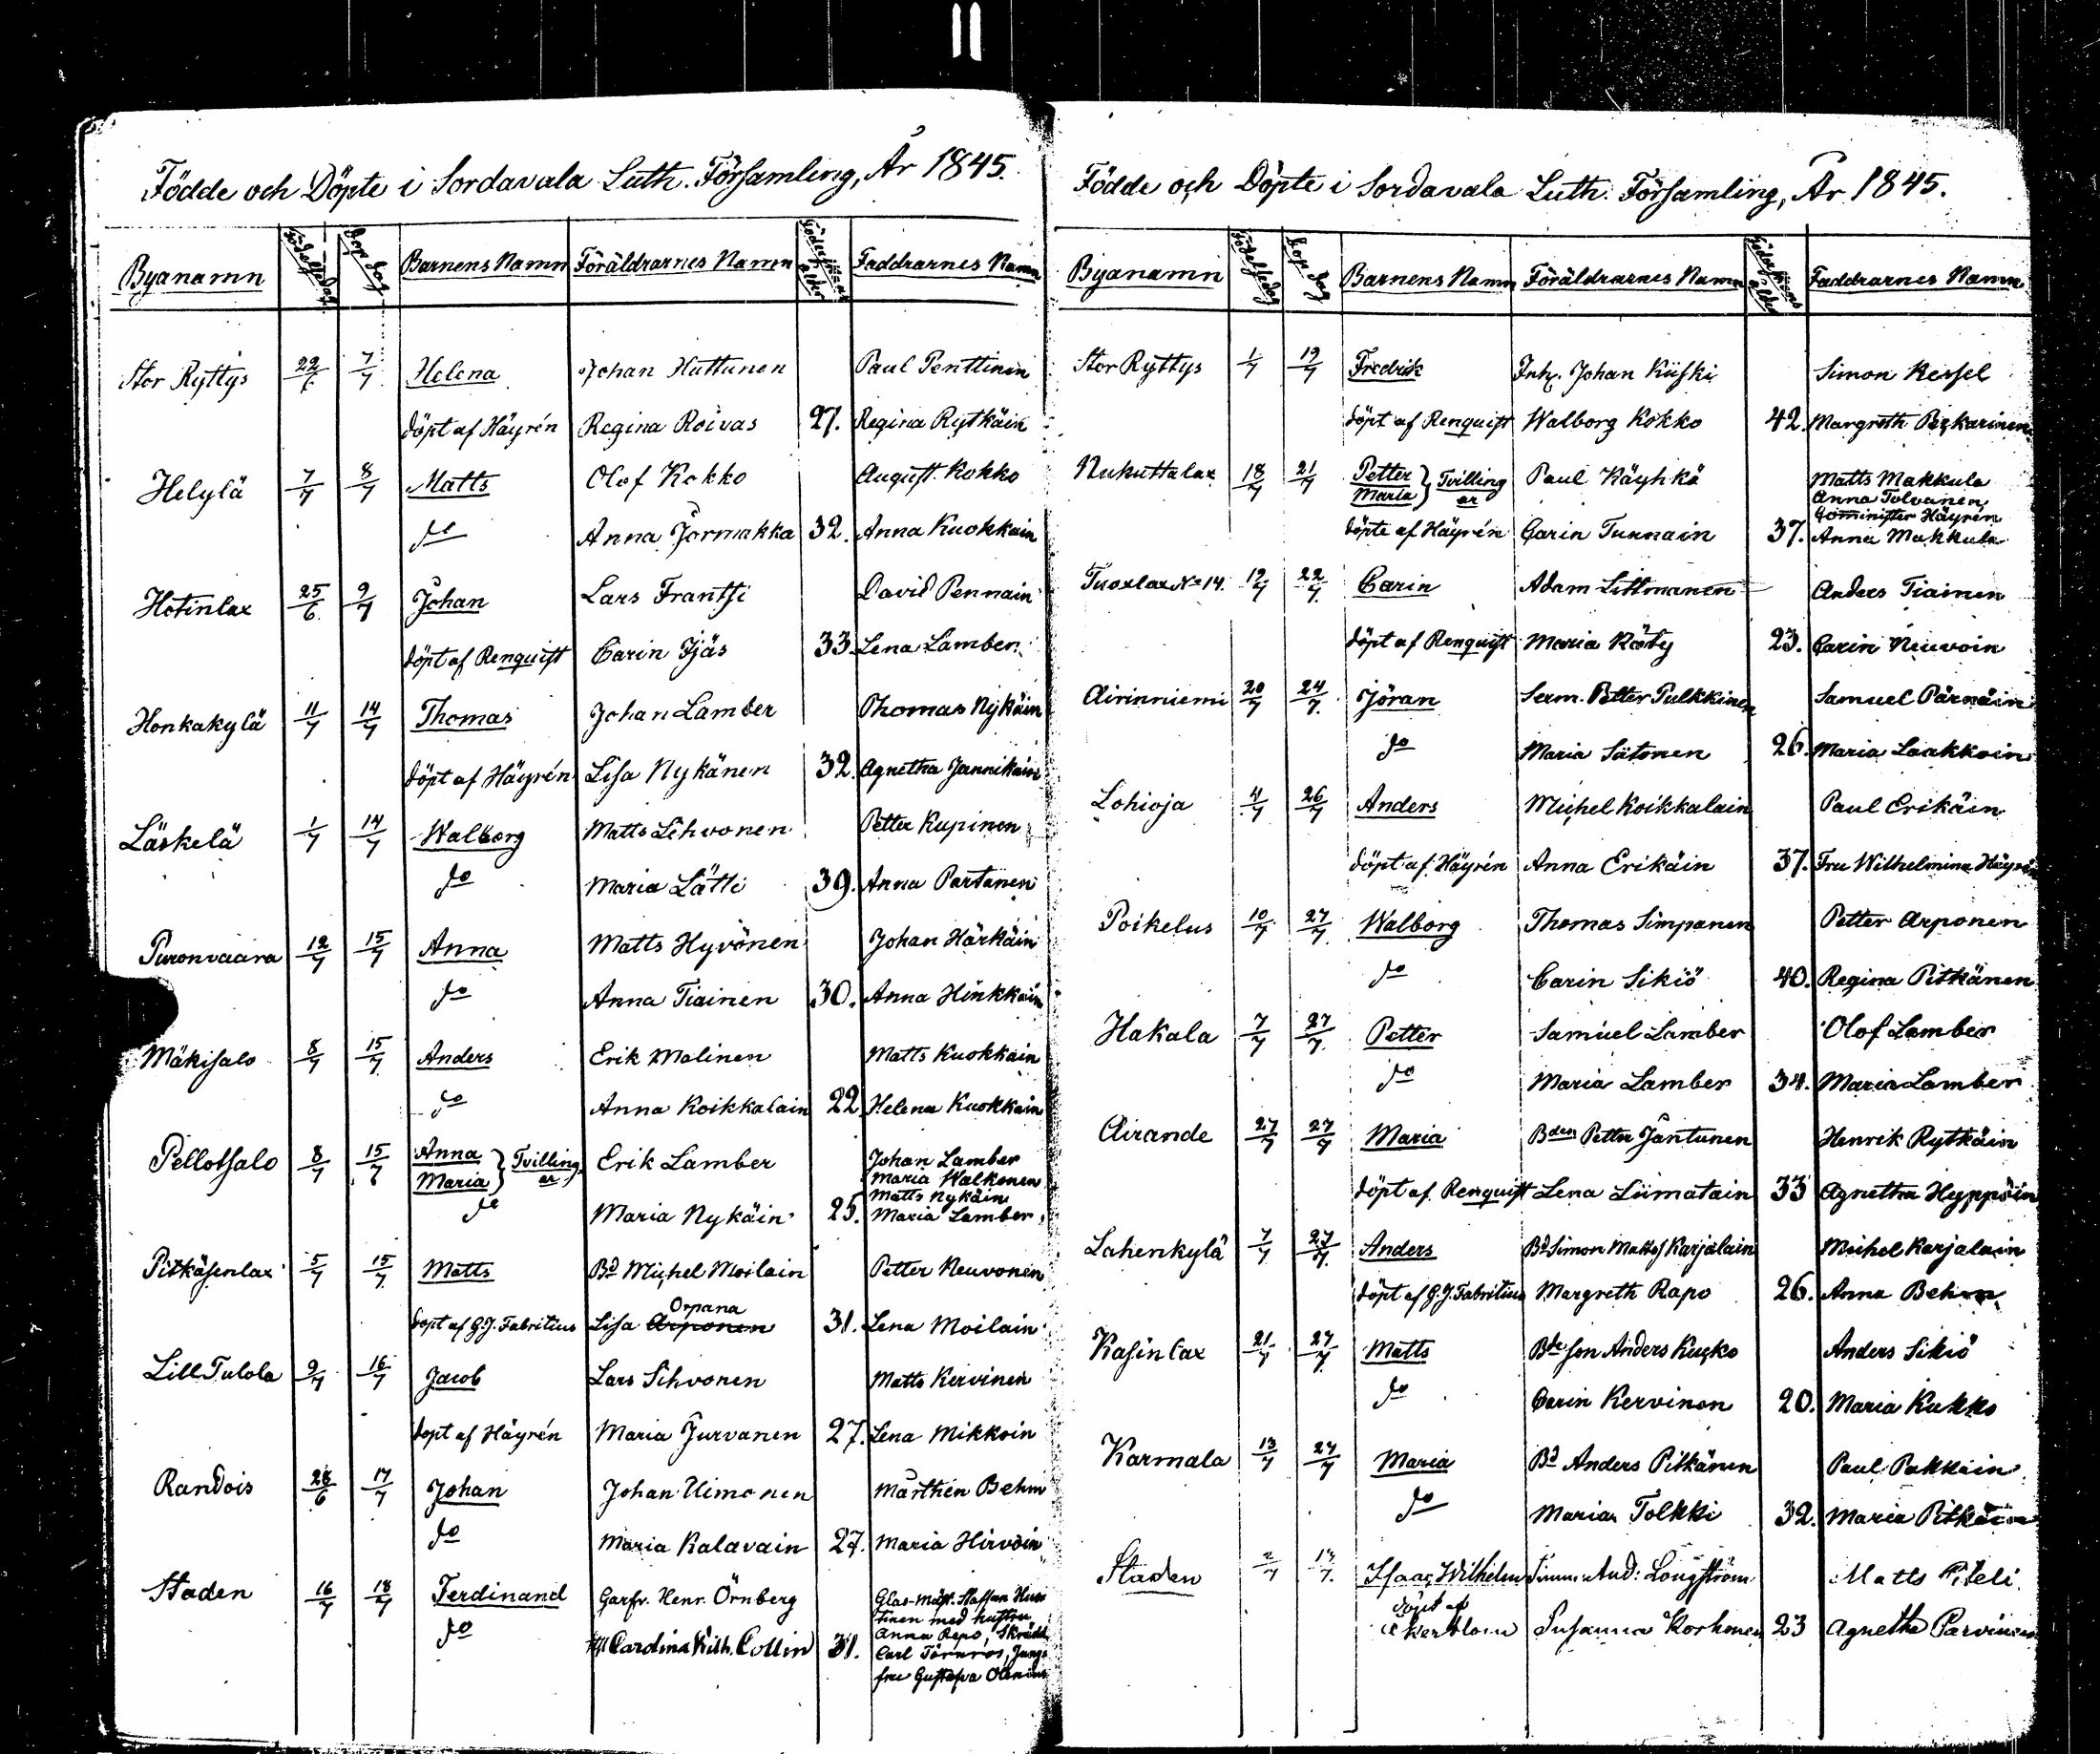 Födde och Döpte i Sordavala Luth. Församling, År 1845.
Byanamn Födelsedag Dop dag Barnens Namn Föräldrarnes Namn Föderskans ålder Faddrarnes Namn
Stor Ryttys 22/6 7/7 Helena Johan Huttunen Paul Penttinin
döpt af Häyrén Regina Roivas 27. Regina Rytkäin
Helylä 7/7 8/7 Matts Olof Kokko August Kokko
do Anna Jormakka 32. Anna Kuokkain
Hotinlax 25/6 9/7 Johan Lars Frantsi David Pennain
döpt af Renquist Carin Ijäs 33. Lena Lamber
Honkakylä 11/7 14/7 Thomas Johan Lamber Thomas Nykäin
döpt af Häyrén Lisa Nykänen 32. Agnetha Jannikäin
Läskelä 1/7 14/7 Walborg Matts Sihvonen Petter Kupinen
do Maria Lätti 39. Anna Partanen
Puronvaara 12/7 15/7 Anna Matts Hyvönen Johan Härkäin
do Anna Tiainen 30. Anna Hinkkain
Mäkisalo 8/7 15/7 Anders Erik Malinen Matts Kuokkain
do Anna Koikkalain 22. Helena Kuokkain
Pellotsalo 8/7 15/7 Anna Maria } Tvillingar Erik Lamber Johan Lamber
Maria Walkonen
Matts Nykäin
do Maria Nykäin 25. Maria Lamber
Pitkäsenlax 5/7 15/7 Matts Bd Michel Moilain Petter Neuvonen
Orpana
döpt af G.J. Fabritius Lisa Arponen 31. Lena Moilain
Lill Tulola 9/7 16/7 Jacob Lars Sihvonen Matts Kervinen
döpt af Häyrén Maria Jurvanen 27. Lena Mikkoin
Randois 28/6 17/7 Johan Johan Uimonen Mårthen Behm
do Maria Kalavain 27. Maria Hirvoin
Staden 16/7 18/7 Ferdinand Garfv. Henr. Örnberg Glas-mäst. Staffan Hus
tinen med hustru
do Carolina Wilh. Collin 31. Anna Repo, Skrädd.
Carl Törnros, Jung-
fru Gustafva
Födde och Döpte i Sordavala Luth. Församling, År 1845.
Byanamn Födelsedag Dop dag Barnens Namn Föräldrarnes Namn Föderskans ålder Faddrarnes Namn
Stor Ryttys 1/7 19/7 Fredrik Inh. Johan Kiiski Simon Kessel
döpt af Renquist Walborg Kokko 42. Margreth Pezkarinen
Nukuttalax 18/7 21/7 Petter Maria } Tvillingar Paul Käyhkö Matts Makkula
Anna Tolvanen
Cominister Häyrén
döpte af Häyrén Carin Tunnain 37. Anna Makkula
Tuoxlax No 14. 19/7 22/7 Carin Adam Littmanen Anders Tiainen
döpt af Renquist Maria Räty 23. Carin Neuvoin
Airinniemi 20/7 24/7 Jöran Serm. Petter Pulkkinen Samuel Pärnäin
do Maria Sutonen 26. Maria Laakkoin
Lohioja 4/7 26/7 Anders Michel Koikkalain Paul Erikäin
döpt af Häyrén Anna Erikäin 37. Fru Wilhelmina Häyrén
Poikelus 10/7 27/7 Walborg Thomas Simpanen Petter Arponen
do Carin Sikiö 40. Regina Pitkänen
Hakala 7/7 27/7 Petter Samuel Lamber Olof Lamber
do Maria Lamber 34. Maria Lamber
Airande 27/7 27/7 Maria Bden Petter Jantunen Henrik Rytkäin
döpt af Renquist Lena Liimatain 33 Agnetha Hyppöin
Lahenkylä 7/7 27/7 Anders Bd Simon Mattss Karjalain Michel Karjalain
döpt af G.J. Fabritius Margreth Rapo 26. Anna Behm
Kasinlax 21/7 27/7 Matts Bde son Anders Kucko Anders Sikiö
do Carin Kervinen 20. Maria Kukko
Karmala 13/7 27/7 Maria Bd Anders Pitkänen Paul Pakkain
do Maria Tolkki 32. Maria Pitkäin
Staden 2/7 17/7 Isaac Wilhelm Timm. And: Longström Matts Piteli
döpt af
Åkerblom Susanna Korhonen 23 Agnetha Parvinen